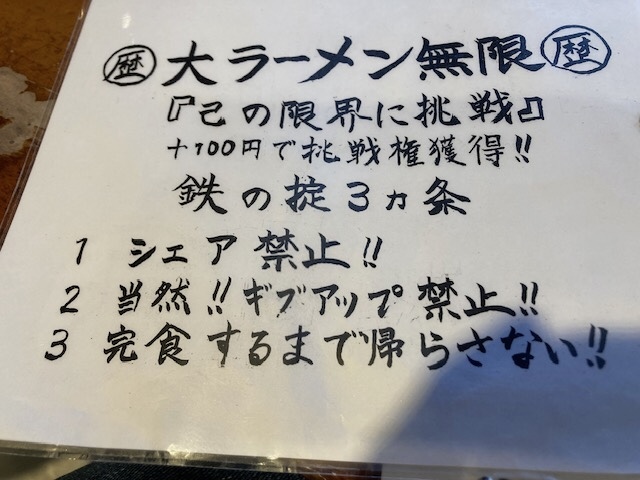 歴 大ラーメン無限 歴
『己の限界に挑戦』
+100円で挑戦権獲得!!
鉄の掟3ヵ条
1 シェア禁止!!
2 当然!!ギブアップ禁止!!
3 完食するまで帰らさない!!